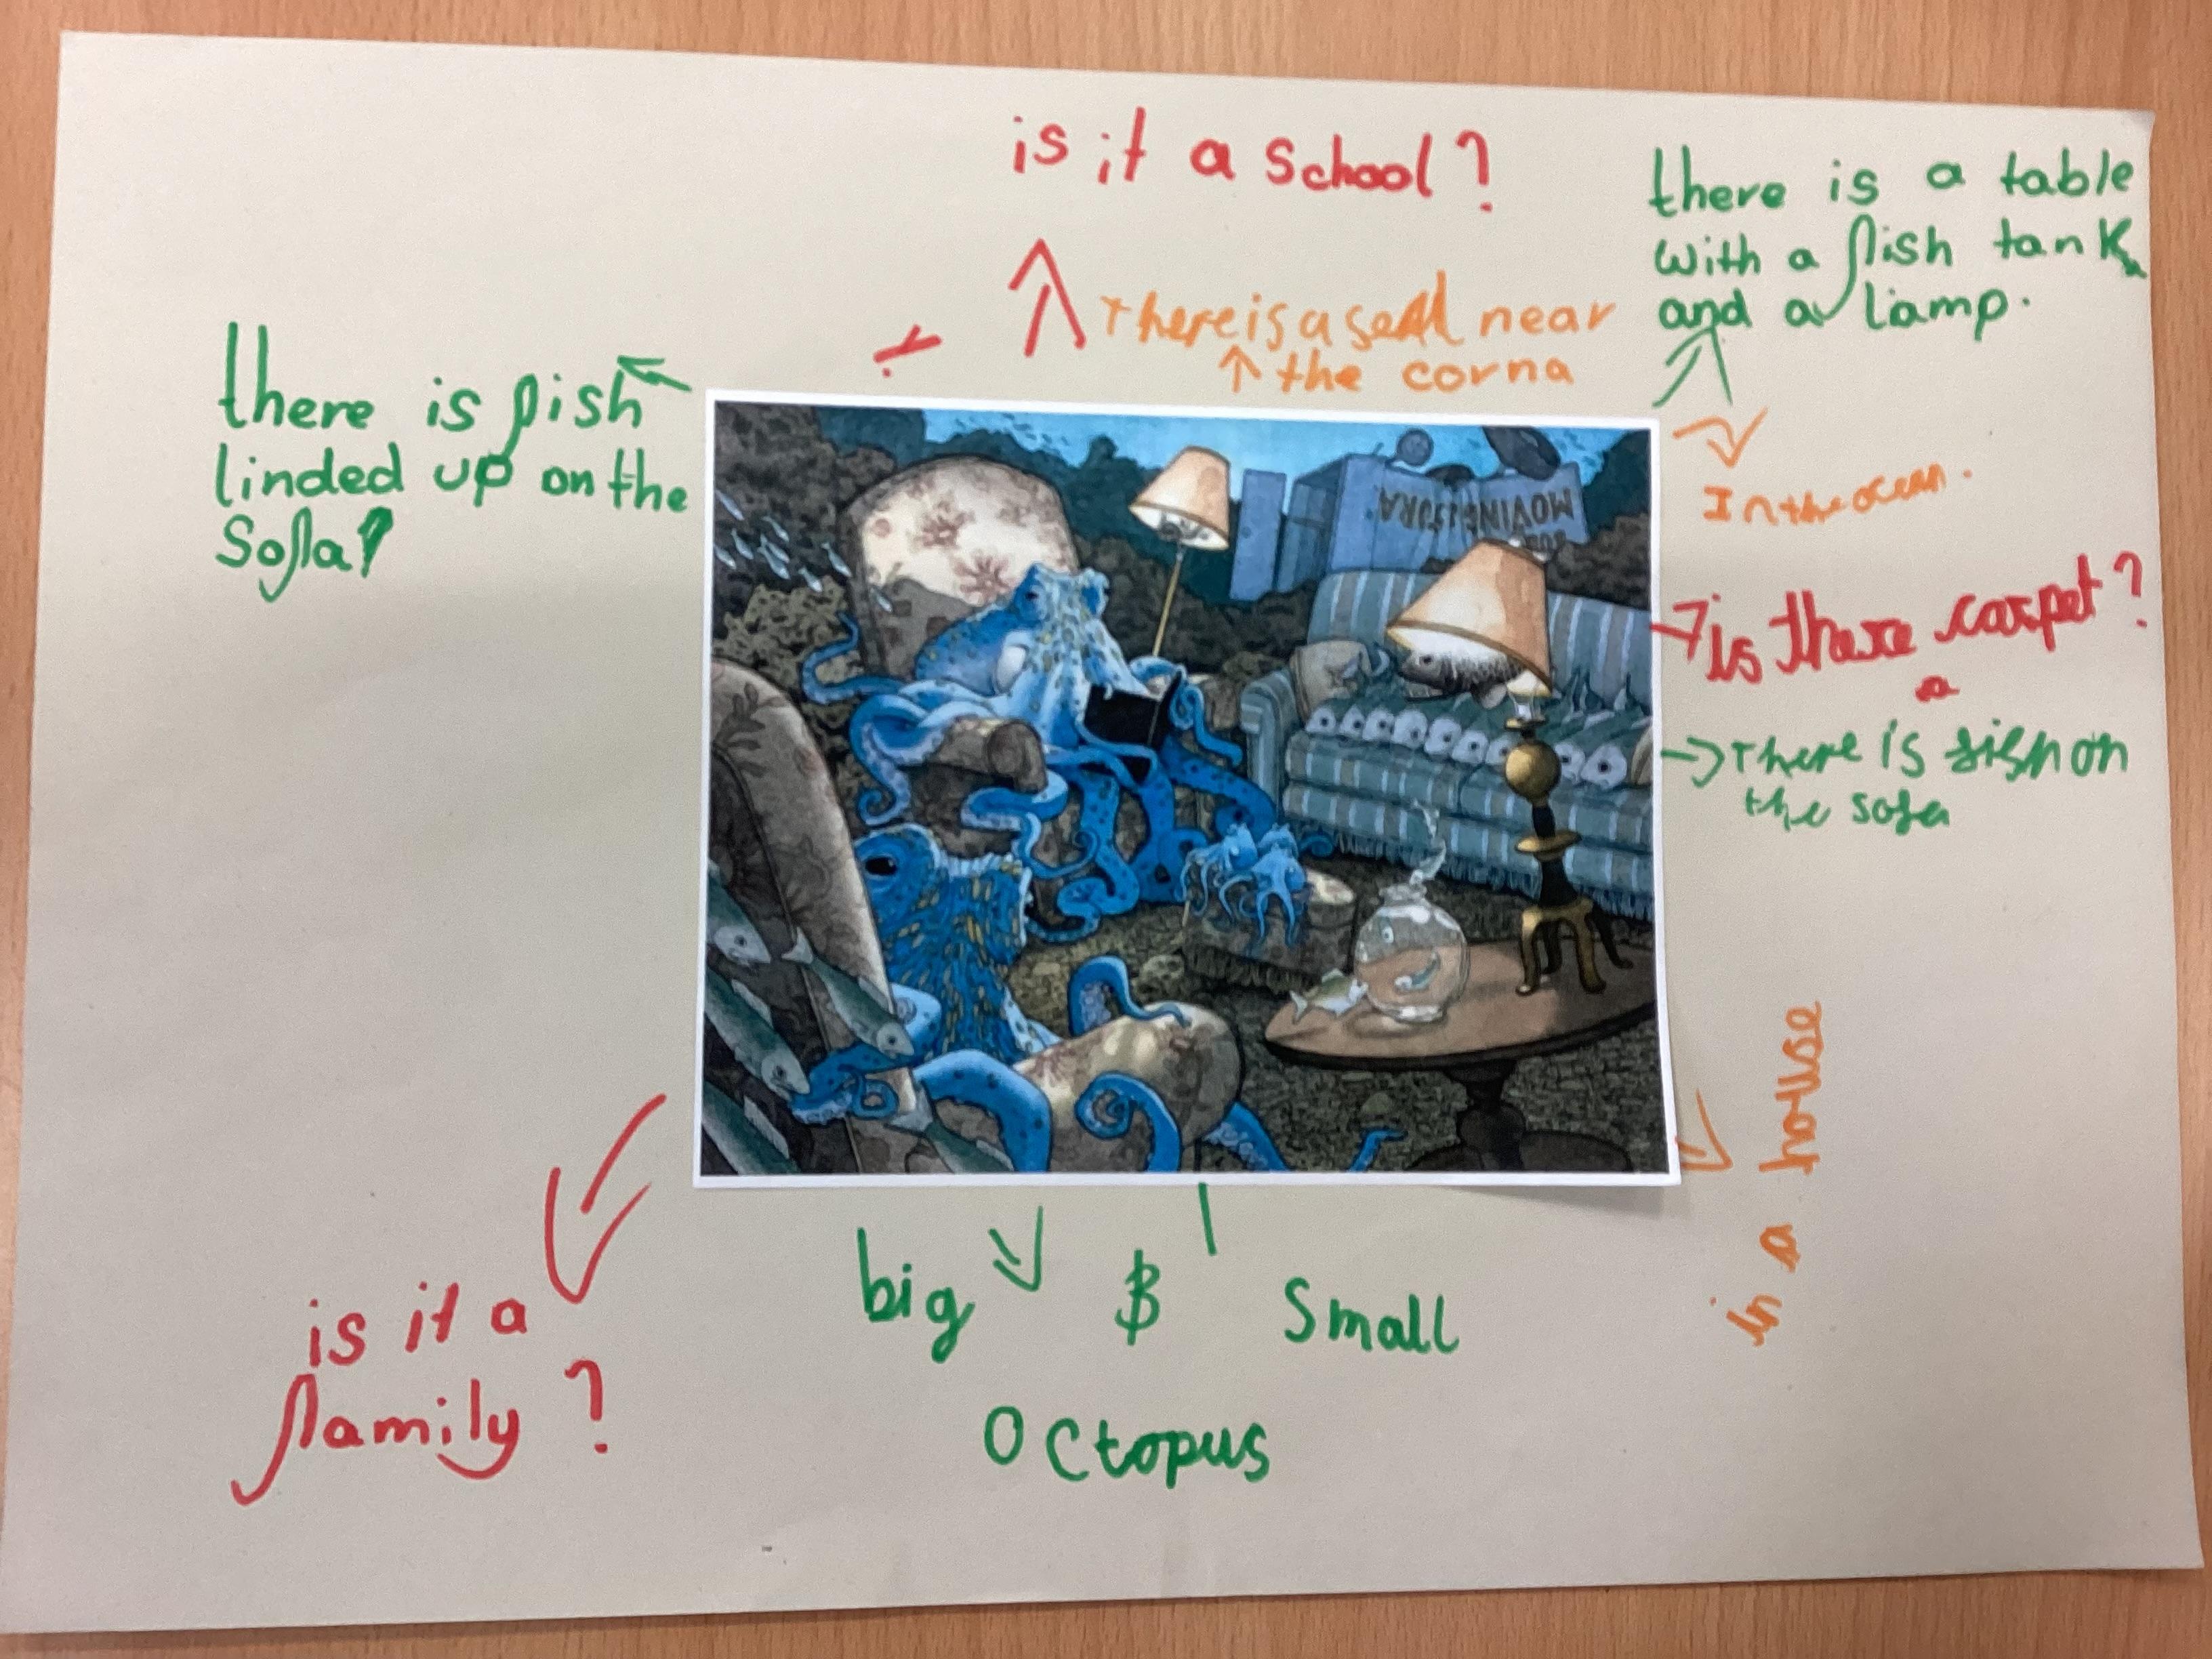 is it a school?
there is a table
with a fish tank
and a lamp.
There is a seal near
the corna
there is fish
linded up on the
Sofa?
In the ocean.
MOVING
is there carpet?
a
There is fish on
the sofa
in a house
is it a
family?
big & small
octopus